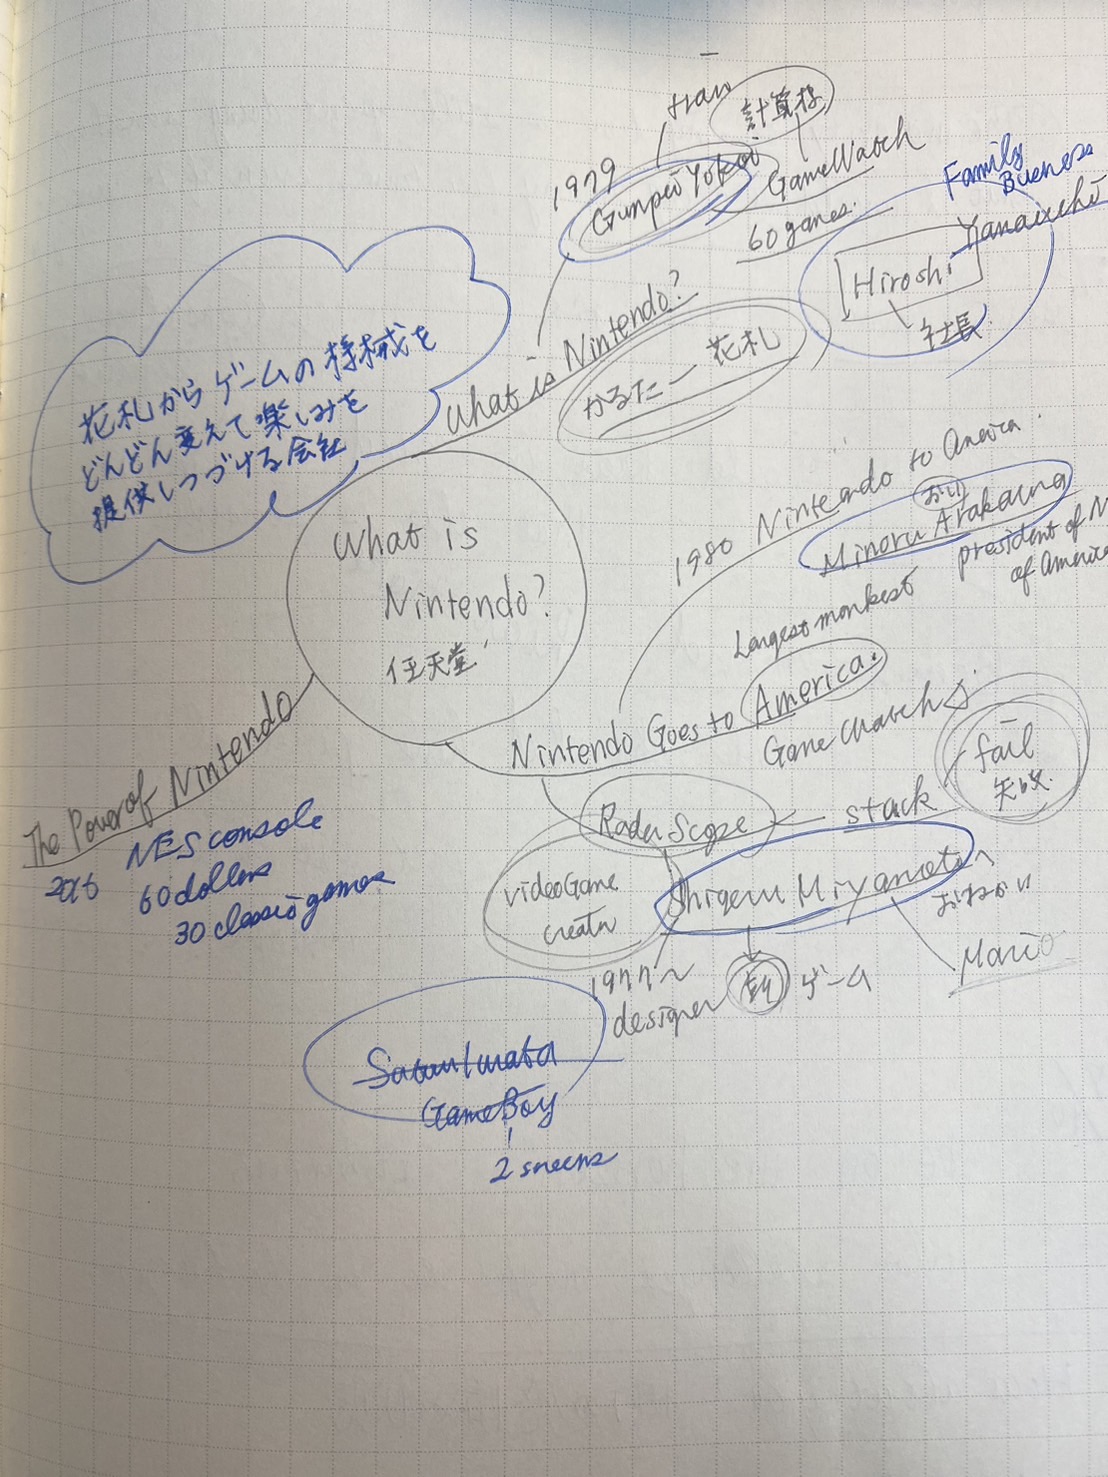 計算機
1979
Gunpei Yokoi
GameWatch
60 games.
Family
Hiroshi
社長
What is Nintendo?
かるたー 花札
花札からゲームの機械を
どんどん変えて楽しみを
提供しつづける会社
What is
Nintendo?
任天堂
1980 Nintendo to
おい
Minoru Arakawa
president of N
of America
Largest
Nintendo Goes to America.
Game Watch
fail
失敗
stuck
Radar Scope
videoGame
creator
Shigeru Miyamotoへ
おねがい
Mario
1977～
designer
新
ゲーム
The Power of Nintendo
2016
NES console
60 dollars
30 classic games
GameBoy
2